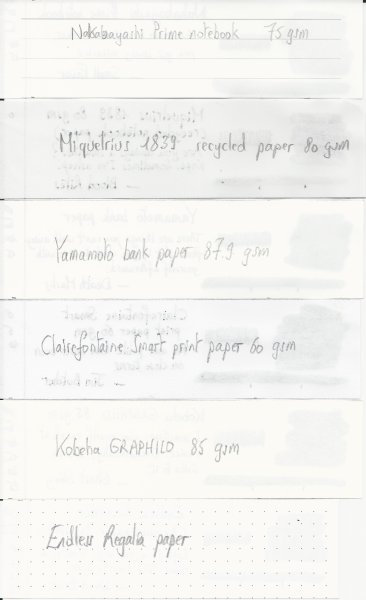 Nakabayashi Prime notebook 75 gsm
Miquelrius 1839 recycled paper 80 gsm
Yamamoto bank paper 87.9 gsm
Clairefontaine Smart print paper 60 gsm
Kobeha GRAPHILO 85 gsm
Endless Regalia paper